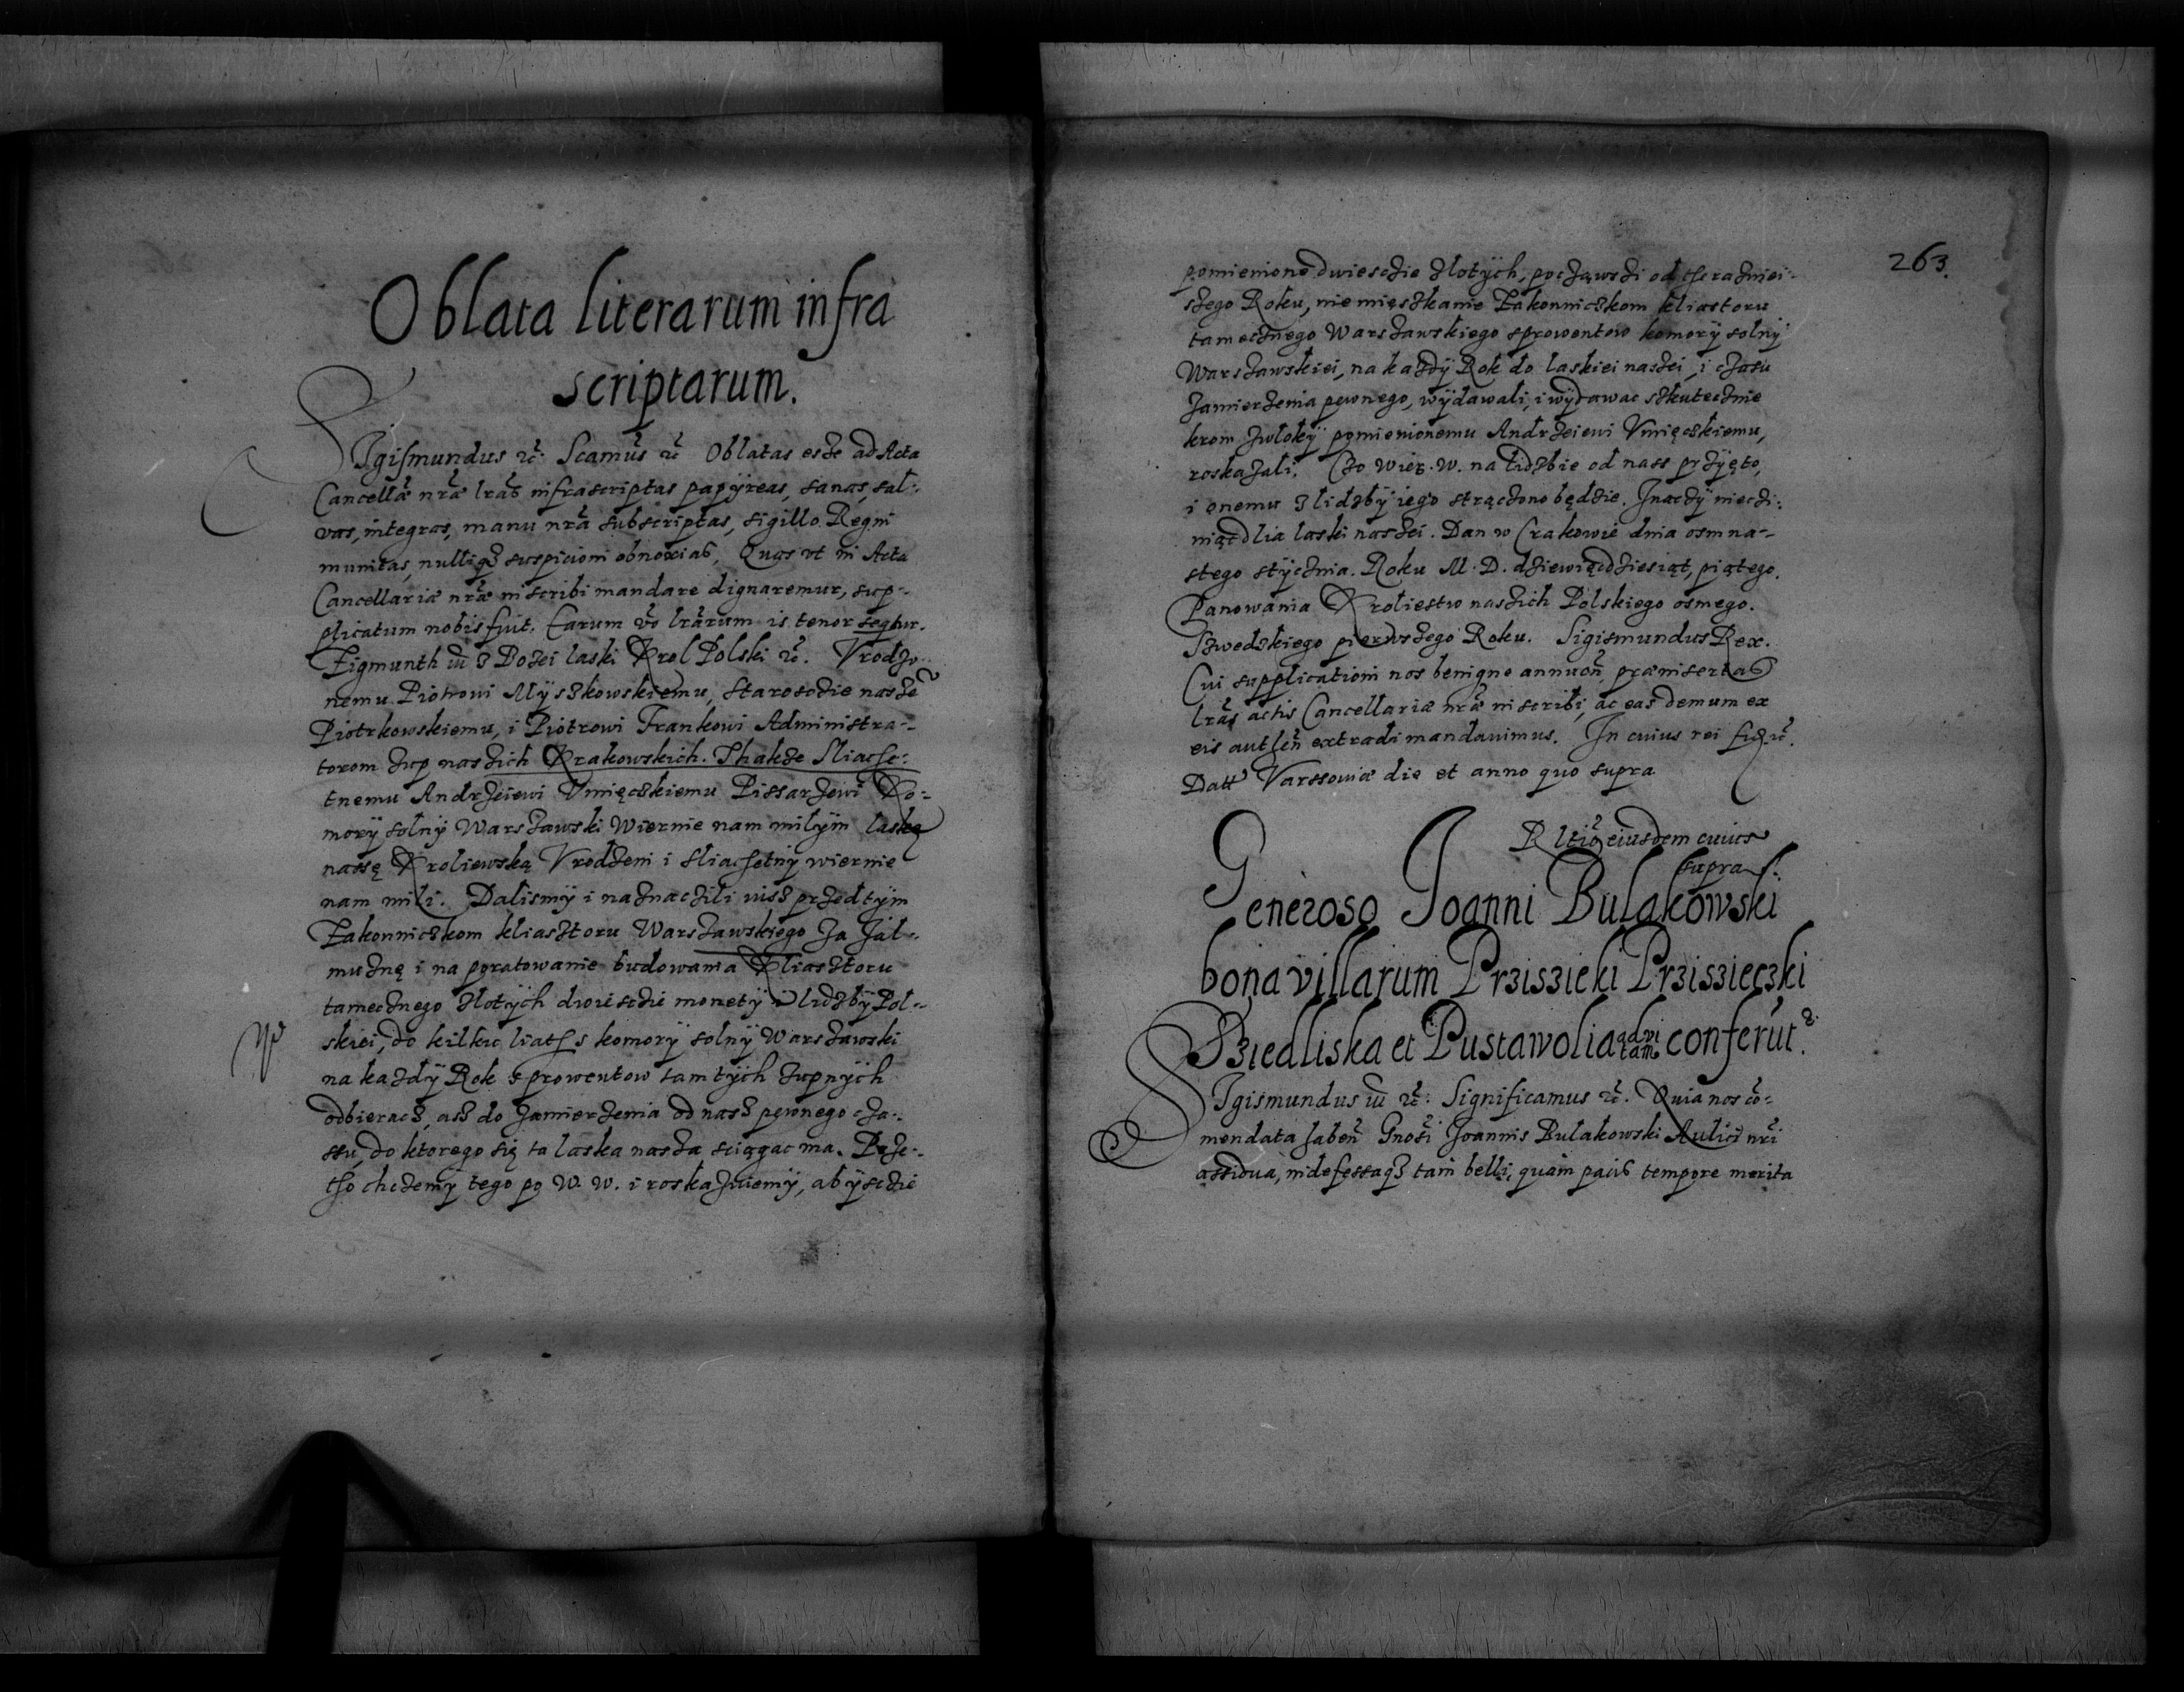 Oblata literarum infra
scriptarum.
Sigismundus etc: Scamus etc Oblatas esse ad Acta
Cancellæ nræ lras infrascriptas papÿreas, sanas, sal-
vas, integras, manu nra subscriptas, sigillo Regni
munitas, nulliq3 suspicioni obnoxias, Quas vt in Acta
Cancellariæ nræ inscribi mandare dignaremur, sup-
plicatum nobis fuit. Earum vo lrarum is tenor seqtur.
Zigmunth iii z Bozei laski Krol Polski etc. Vrodzo-
nemu Piotrowi Mÿszkowskiemu, staroscie nasze
Piotrkowskiemu, i Piotrowi Frankowi Administra-
torom zup naszich Krakowskich. Thakze Sliache-
tnemu Andrzeiewi Vmięczkiemu Pissarzewi Ko-
morÿ solnÿ Warszawski Wiernie nam milÿm laskę
nassę Kroliewską Vrodzeni i sliachetnÿ wiernie
nam mili. Dalismÿ i naznaczili iusz przedtÿm
Zakonniczkom kliasztoru Warszawskiego za jal-
muznę i na poratowanie budowania Kliasztoru
tamecznego zlotÿch dwiescie monetÿ i lidzbÿ Pol-
skiei, do kilku liath s komorÿ solnÿ Warszawski
na kazdÿ Rok s prowentow tamtÿch zupnÿch
odbieracz, asz do zamierzenia od nasz pewnego cza-
ssu, do ktorego się ta laska nasza sciągac ma. Prze-
tho chcemÿ tego po W. W. i roskazuiemÿ, abÿscie
263.
pomienione dwiescie zlotÿch, począwszi od theraznieÿ-
szego Roku, nie mięszkanie Zakonniczkom kliastoru
tamecznego Warszawskiego sprowentow komorÿ solnÿ
Warszawskiei, na kazdÿ Rok do laskiei naszei, i czasu
zamierzenia pewnego, wÿdawali, i wÿdawac szkutecznie
krom zwlokÿ pomienionemu Andrzeiewi Vmięczkiemu,
roskazali. Czo wier. W. na lidzbie od nass przÿęto,
i onemu z lidzbÿ iego strączono będzie. Inaczÿ nieczi-
niąc dlia laski naszei. Dan w Crakowie dnia osmna-
stego stÿcznia. Roku M. D. dziewiącdziesiąt, piątego.
Panowania Kroliestw naszich Polskiego osmego.
Szwedzkiego pierwszego Roku. Sigismundus Rex.
Cui supplicationi nos benigne annuen præinsertas
lras actis Cancellariæ nræ inscribi, ac eas demum ex
eis authen extradi mandauimus. In cuius rei fid. etc.
Datt Varssowiæ die et anno quo supra
Rltio eiusdem cuius
supra s.
Generoso Joanni Bulakowski
bona villarum Prziszieki Prziszieczki
Sziedliska et Pustawolia advitam conferut.
Sigismundus iii etc: Significamus etc. Quia nos co-
mendata haben Gnosi Joannis Bulakowski Aulici nri
assidua, indefessaq3 tam belli, quam pacis tempore merita